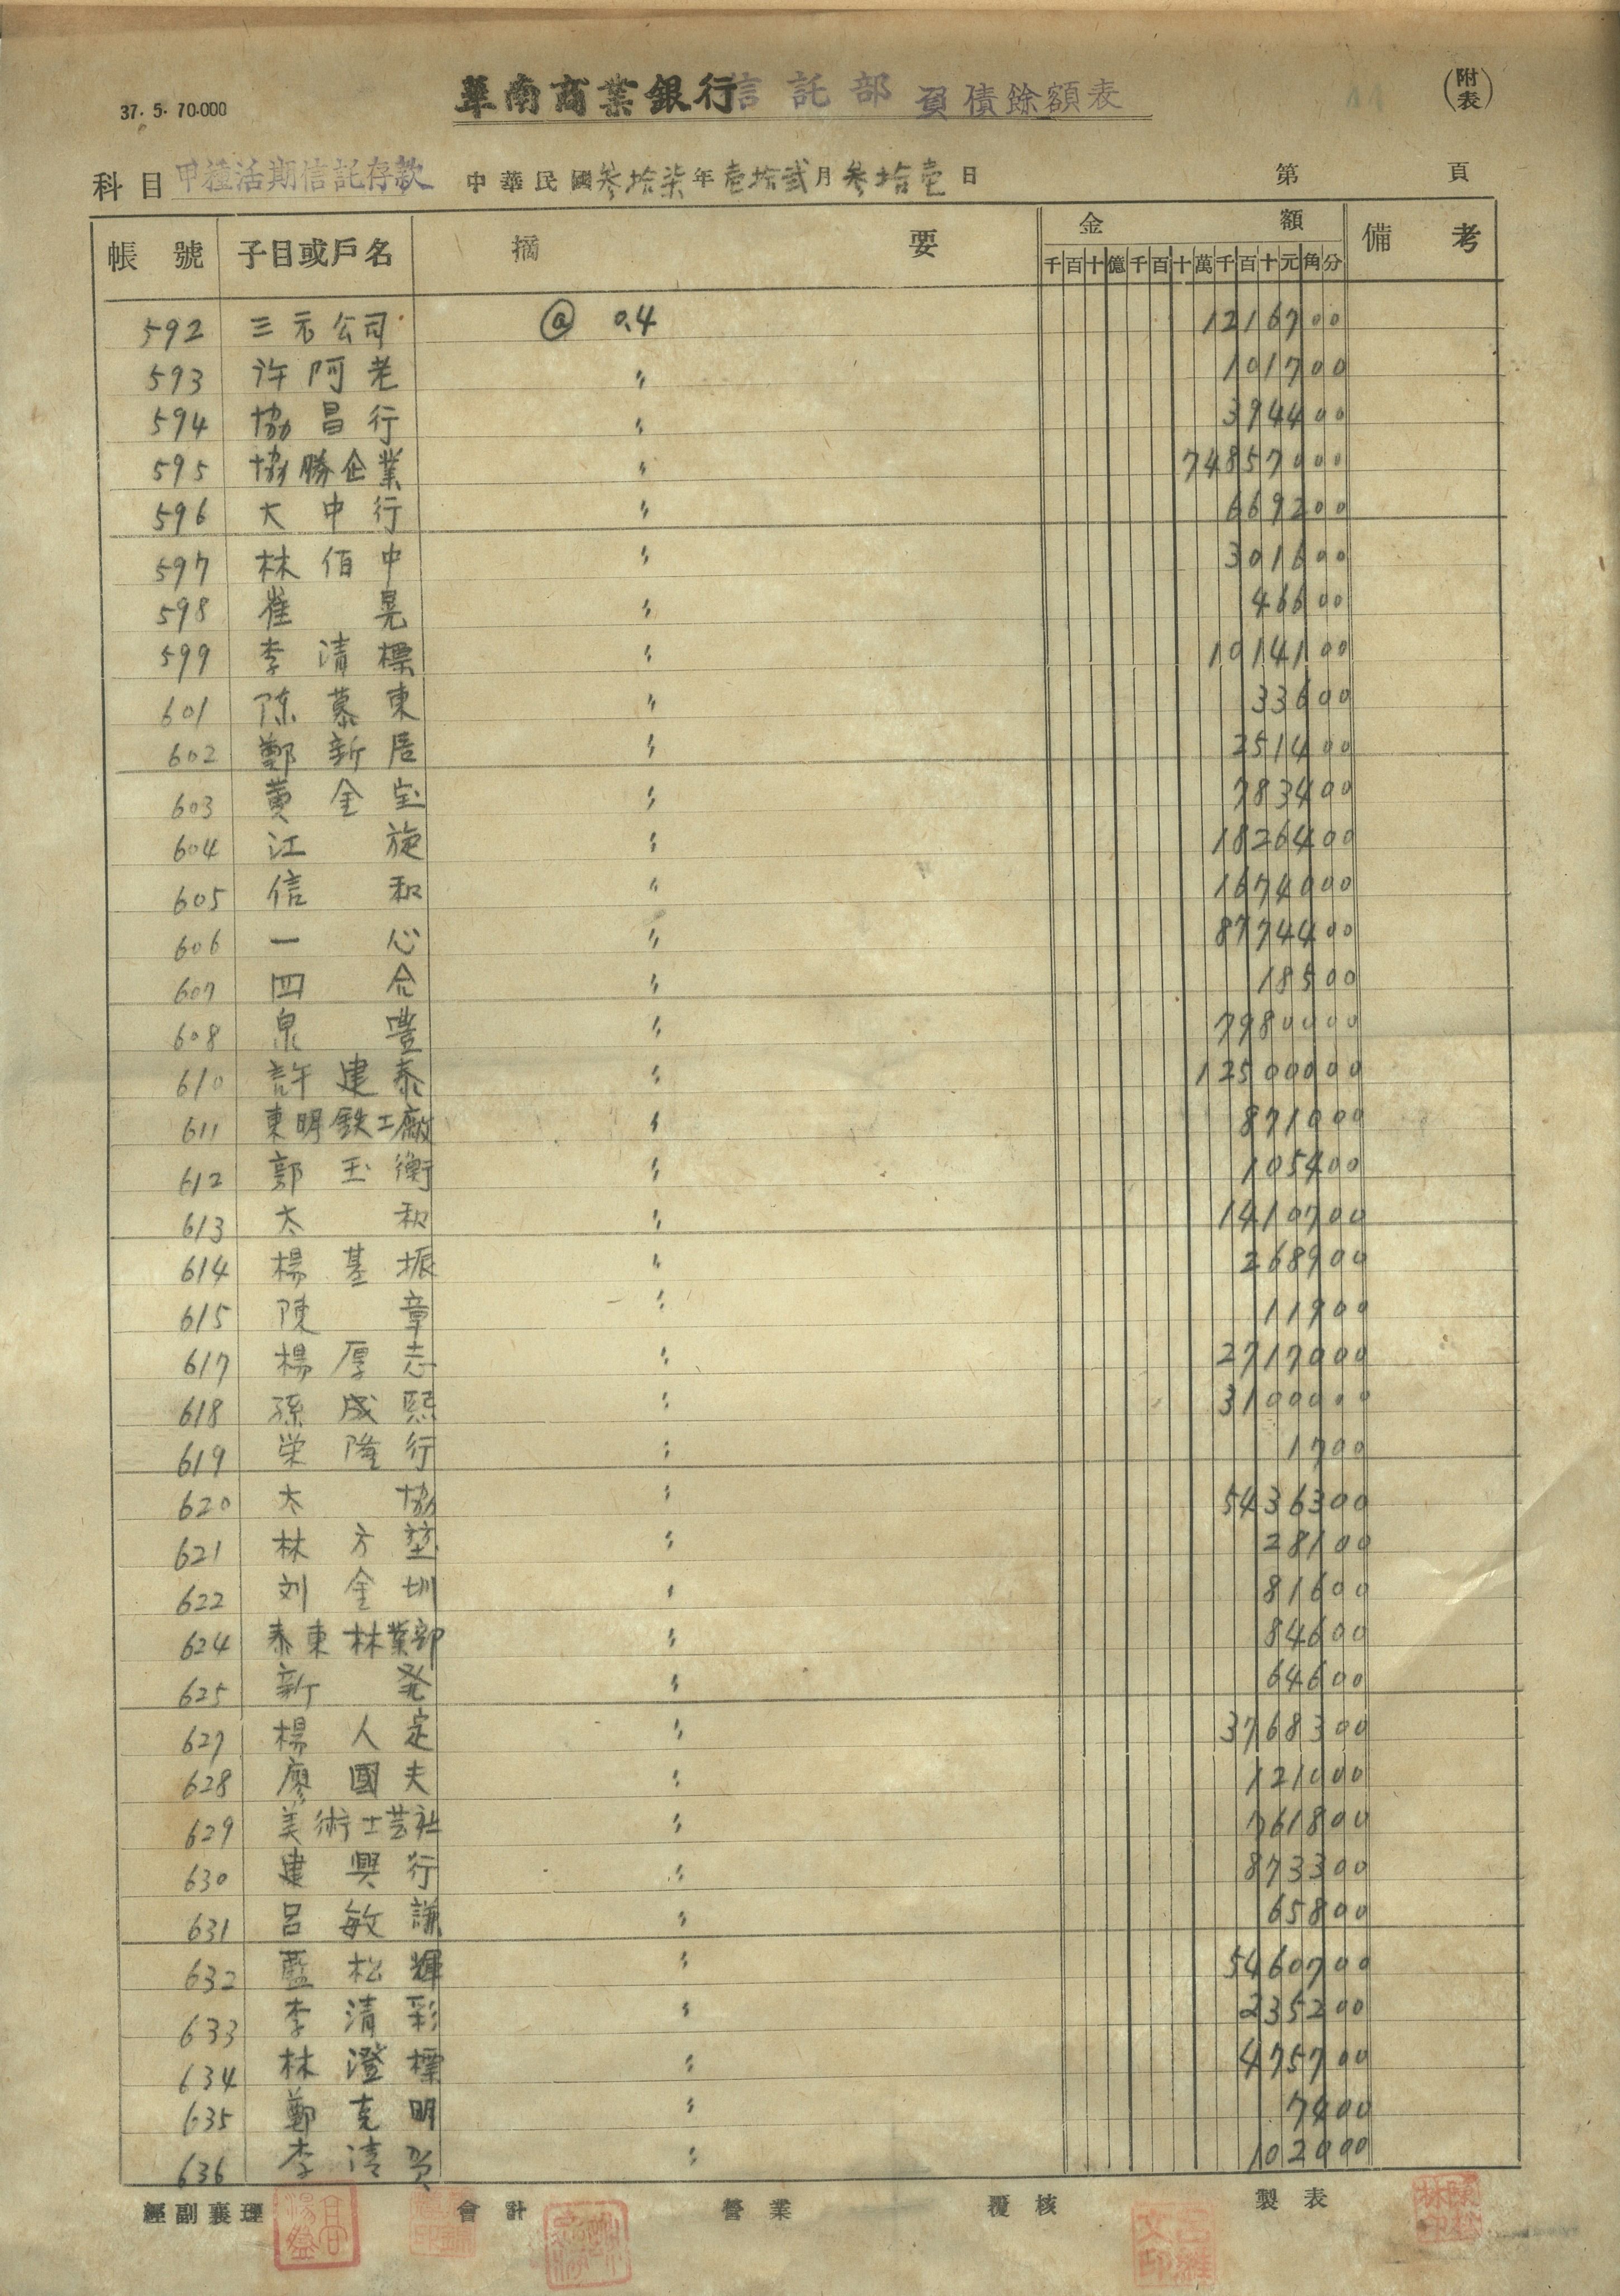 37. 5. 70.000
華南商業銀行信託部 負債餘額表
(附表)
科目 甲種活期信託存款 中華民國叁拾柒年壹拾貳月叁拾壹日 第 頁
帳號 子目或戶名 摘要 金額 備考
千百十億千百十萬千百十元角分
592 三元公司 @ 0.4 1216700
593 許阿老 〃 101700
594 協昌行 〃 394400
595 協勝企業 〃 74857000
596 大中行 〃 669200
597 林佰中 〃 301600
598 崔晃 〃 46600
599 李清標 〃 1014100
601 陈慕東 〃 33600
602 鄭新居 〃 251400
603 黄金宝 〃 783400
604 江施 〃 1826400
605 信和 〃 1674000
606 一心 〃 8774400
607 四合 〃 18500
608 泉豐 〃 7980000
610 許建泰 〃 12500000
611 東明鉄工廠 〃 871000
612 郭玉衡 〃 105400
613 太和 〃 1410700
614 楊基振 〃 268900
615 陳章 〃 11900
617 楊厚志 〃 2717000
618 孫成熙 〃 3100000
619 栄隆行 〃 1700
620 太協 〃 5436300
621 林方 〃 28100
622 刘金圳 〃 81600
624 泰東林業部 〃 84600
625 新発 〃 64600
627 楊人定 〃 3768300
628 廖國夫 〃 121000
629 美術士芸社 〃 761800
630 建興行 〃 873300
631 呂敏謙 〃 65800
632 藍松輝 〃 5460700
633 李清彩 〃 235200
634 林澄標 〃 475700
635 鄭克明 〃 7400
636 李清 〃 102000
經副襄理 會計 營業 覆核 製表